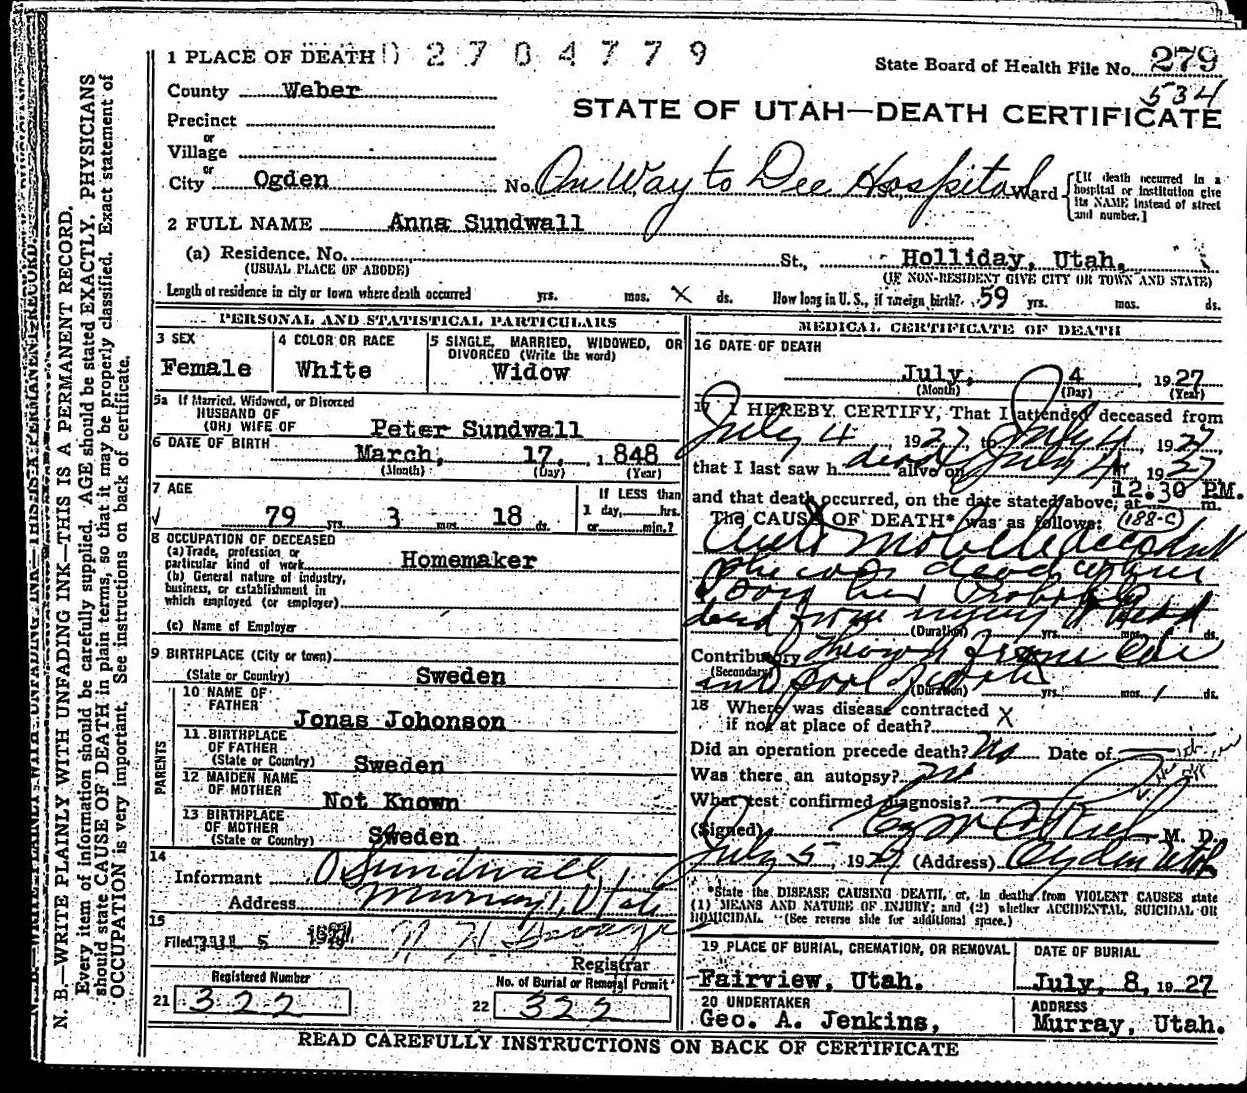 1 PLACE OF DEATH 0 2 7 0 4 7 7 9
State Board of Health File No. 279
534
County Weber
STATE OF UTAH—DEATH CERTIFICATE
Precinct
or
Village
or
City Ogden No. On Way to Dee Hospital St., Ward
[If death occurred in a hospital or institution give its NAME instead of street and number.]
2 FULL NAME Anna Sundwall
(a) Residence. No. St., Holliday, Utah.
(USUAL PLACE OF ABODE) (IF NON-RESIDENT GIVE CITY OR TOWN AND STATE)
Length of residence in city or town where death occurred yrs. mos. X ds. How long in U. S., if foreign birth? 59 yrs. mos. ds.
PERSONAL AND STATISTICAL PARTICULARS
3 SEX
Female
4 COLOR OR RACE
White
5 SINGLE, MARRIED, WIDOWED, OR
DIVORCED (Write the word)
Widow
5a If Married, Widowed, or Divorced
HUSBAND OF
(OR) WIFE OF Peter Sundwall
6 DATE OF BIRTH March, 17, 1848
(Month) (Day) (Year)
7 AGE
79 yrs. 3 mos. 18 ds.
If LESS than
1 day, hrs.
or min.?
8 OCCUPATION OF DECEASED
(a) Trade, profession or
particular kind of work Homemaker
(b) General nature of industry,
business, or establishment in
which employed (or employer)
(c) Name of Employer
9 BIRTHPLACE (City or town)
(State or Country) Sweden
PARENTS
10 NAME OF
FATHER
Jonas Johonson
11 BIRTHPLACE
OF FATHER
(State or Country) Sweden
12 MAIDEN NAME
OF MOTHER
Not Known
13 BIRTHPLACE
OF MOTHER
(State or Country) Sweden
14
Informant O Sundwall
Address Murray, Utah
15
Filed JUL 5 1927
Registrar
Registered Number
21 322
No. of Burial or Removal Permit
22 322
MEDICAL CERTIFICATE OF DEATH
16 DATE OF DEATH
July, 4 1927
(Month) (Day) (Year)
17 I HEREBY CERTIFY, That I attended deceased from
July 4 1927 to July 4 1927
that I last saw h dead alive on July 4 1927
12.30 P.M.
and that death occurred, on the date stated above, at m.
The CAUSE OF DEATH* was as follows: 188-c
she was dead when
I saw her Probably
dead from injury to Head
(Duration) yrs. mos. ds.
Contributory Thrown from Car
(Secondary)
(Duration) yrs. mos. ds.
18 Where was disease contracted
if not at place of death? X
Did an operation precede death? No Date of
Was there an autopsy? no
What test confirmed diagnosis?
(Signed) M. D.
July 5, 1927 (Address) Ogden Utah
*State the DISEASE CAUSING DEATH, or, in deaths from VIOLENT CAUSES state
(1) MEANS AND NATURE OF INJURY; and (2) whether ACCIDENTAL, SUICIDAL OR
HOMICIDAL. (See reverse side for additional space.)
19 PLACE OF BURIAL, CREMATION, OR REMOVAL
Fairview, Utah.
DATE OF BURIAL
July, 8, 1927
20 UNDERTAKER
Geo. A. Jenkins,
ADDRESS
Murray, Utah.
READ CAREFULLY INSTRUCTIONS ON BACK OF CERTIFICATE
N. B.—WRITE PLAINLY WITH UNFADING INK—THIS IS A PERMANENT RECORD.
Every item of information should be carefully supplied. AGE should be stated EXACTLY. PHYSICIANS
should state CAUSE OF DEATH in plain terms, so that it may be properly classified. Exact statement of
OCCUPATION is very important. See instructions on back of certificate.